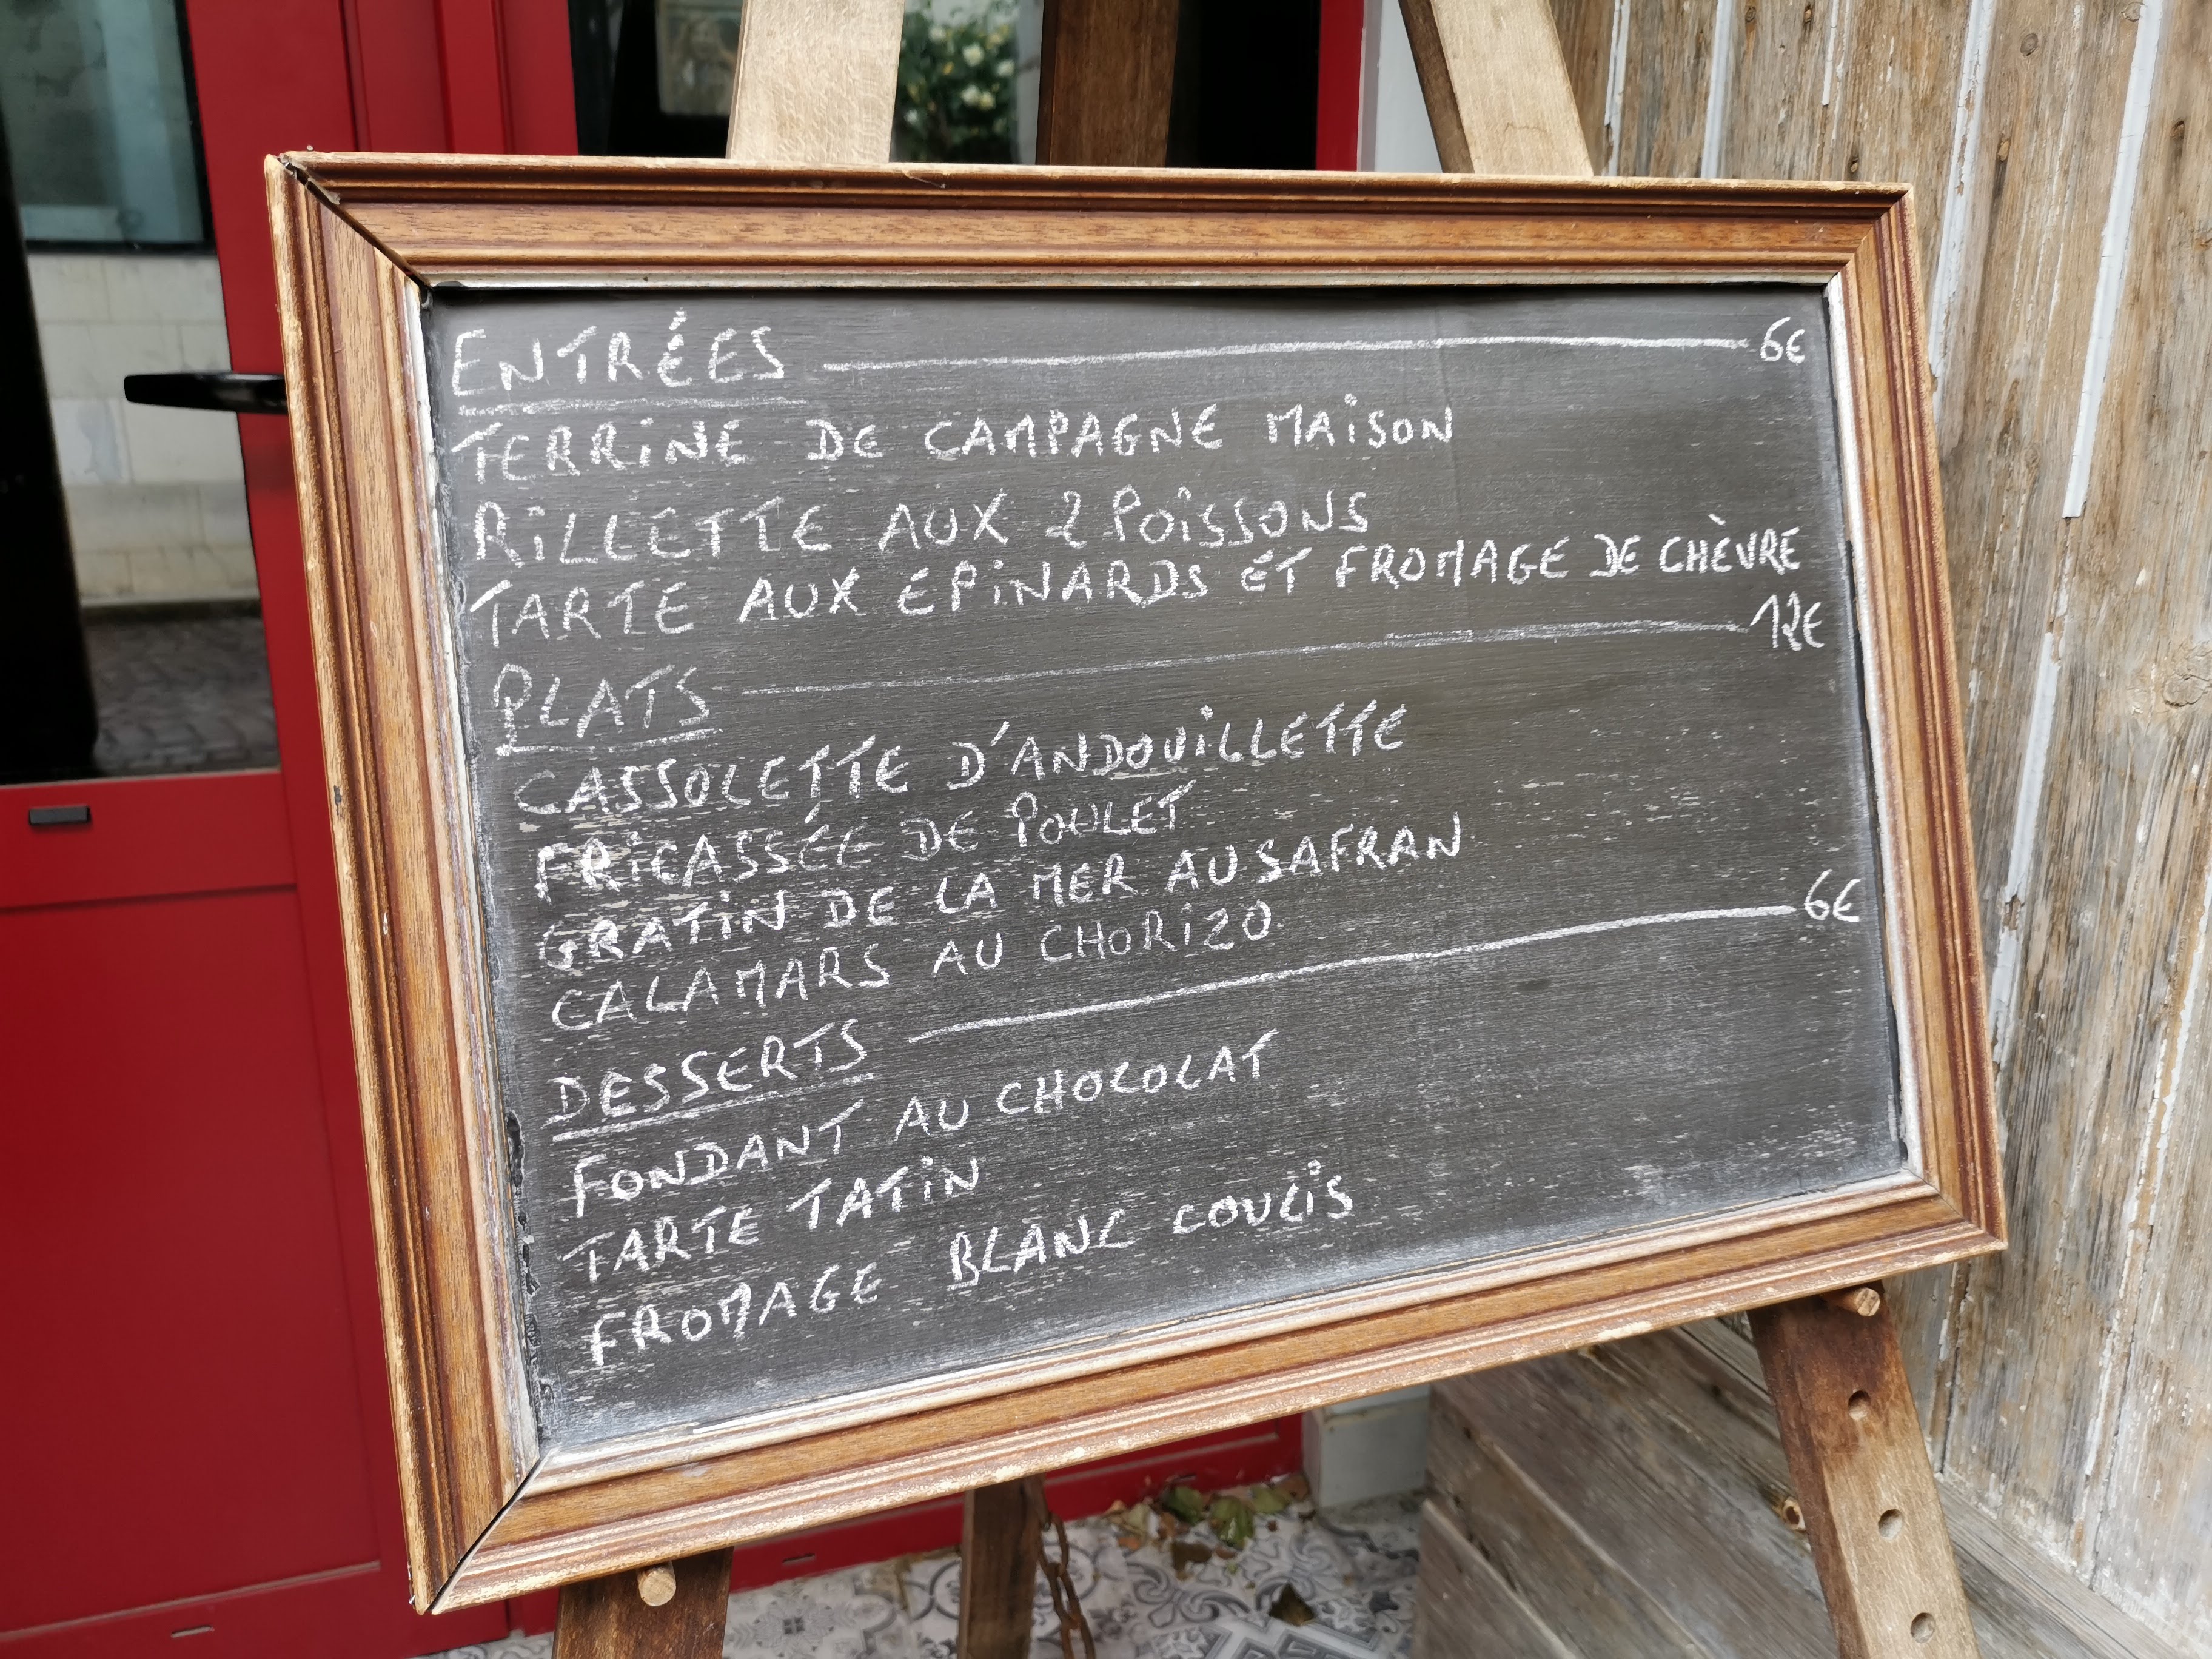 ENTRÉES 6€
TERRINE DE CAMPAGNE MAISON
RILLETTE AUX 2 POISSONS
TARTE AUX EPINARDS ET FROMAGE DE CHÈVRE
PLATS 12€
CASSOLETTE D'ANDOUILLETTE
FRICASSÉE DE POULET
GRATIN DE LA MER AU SAFRAN
CALAMARS AU CHORIZO
DESSERTS 6€
FONDANT AU CHOCOLAT
TARTE TATIN
FROMAGE BLANC COULIS